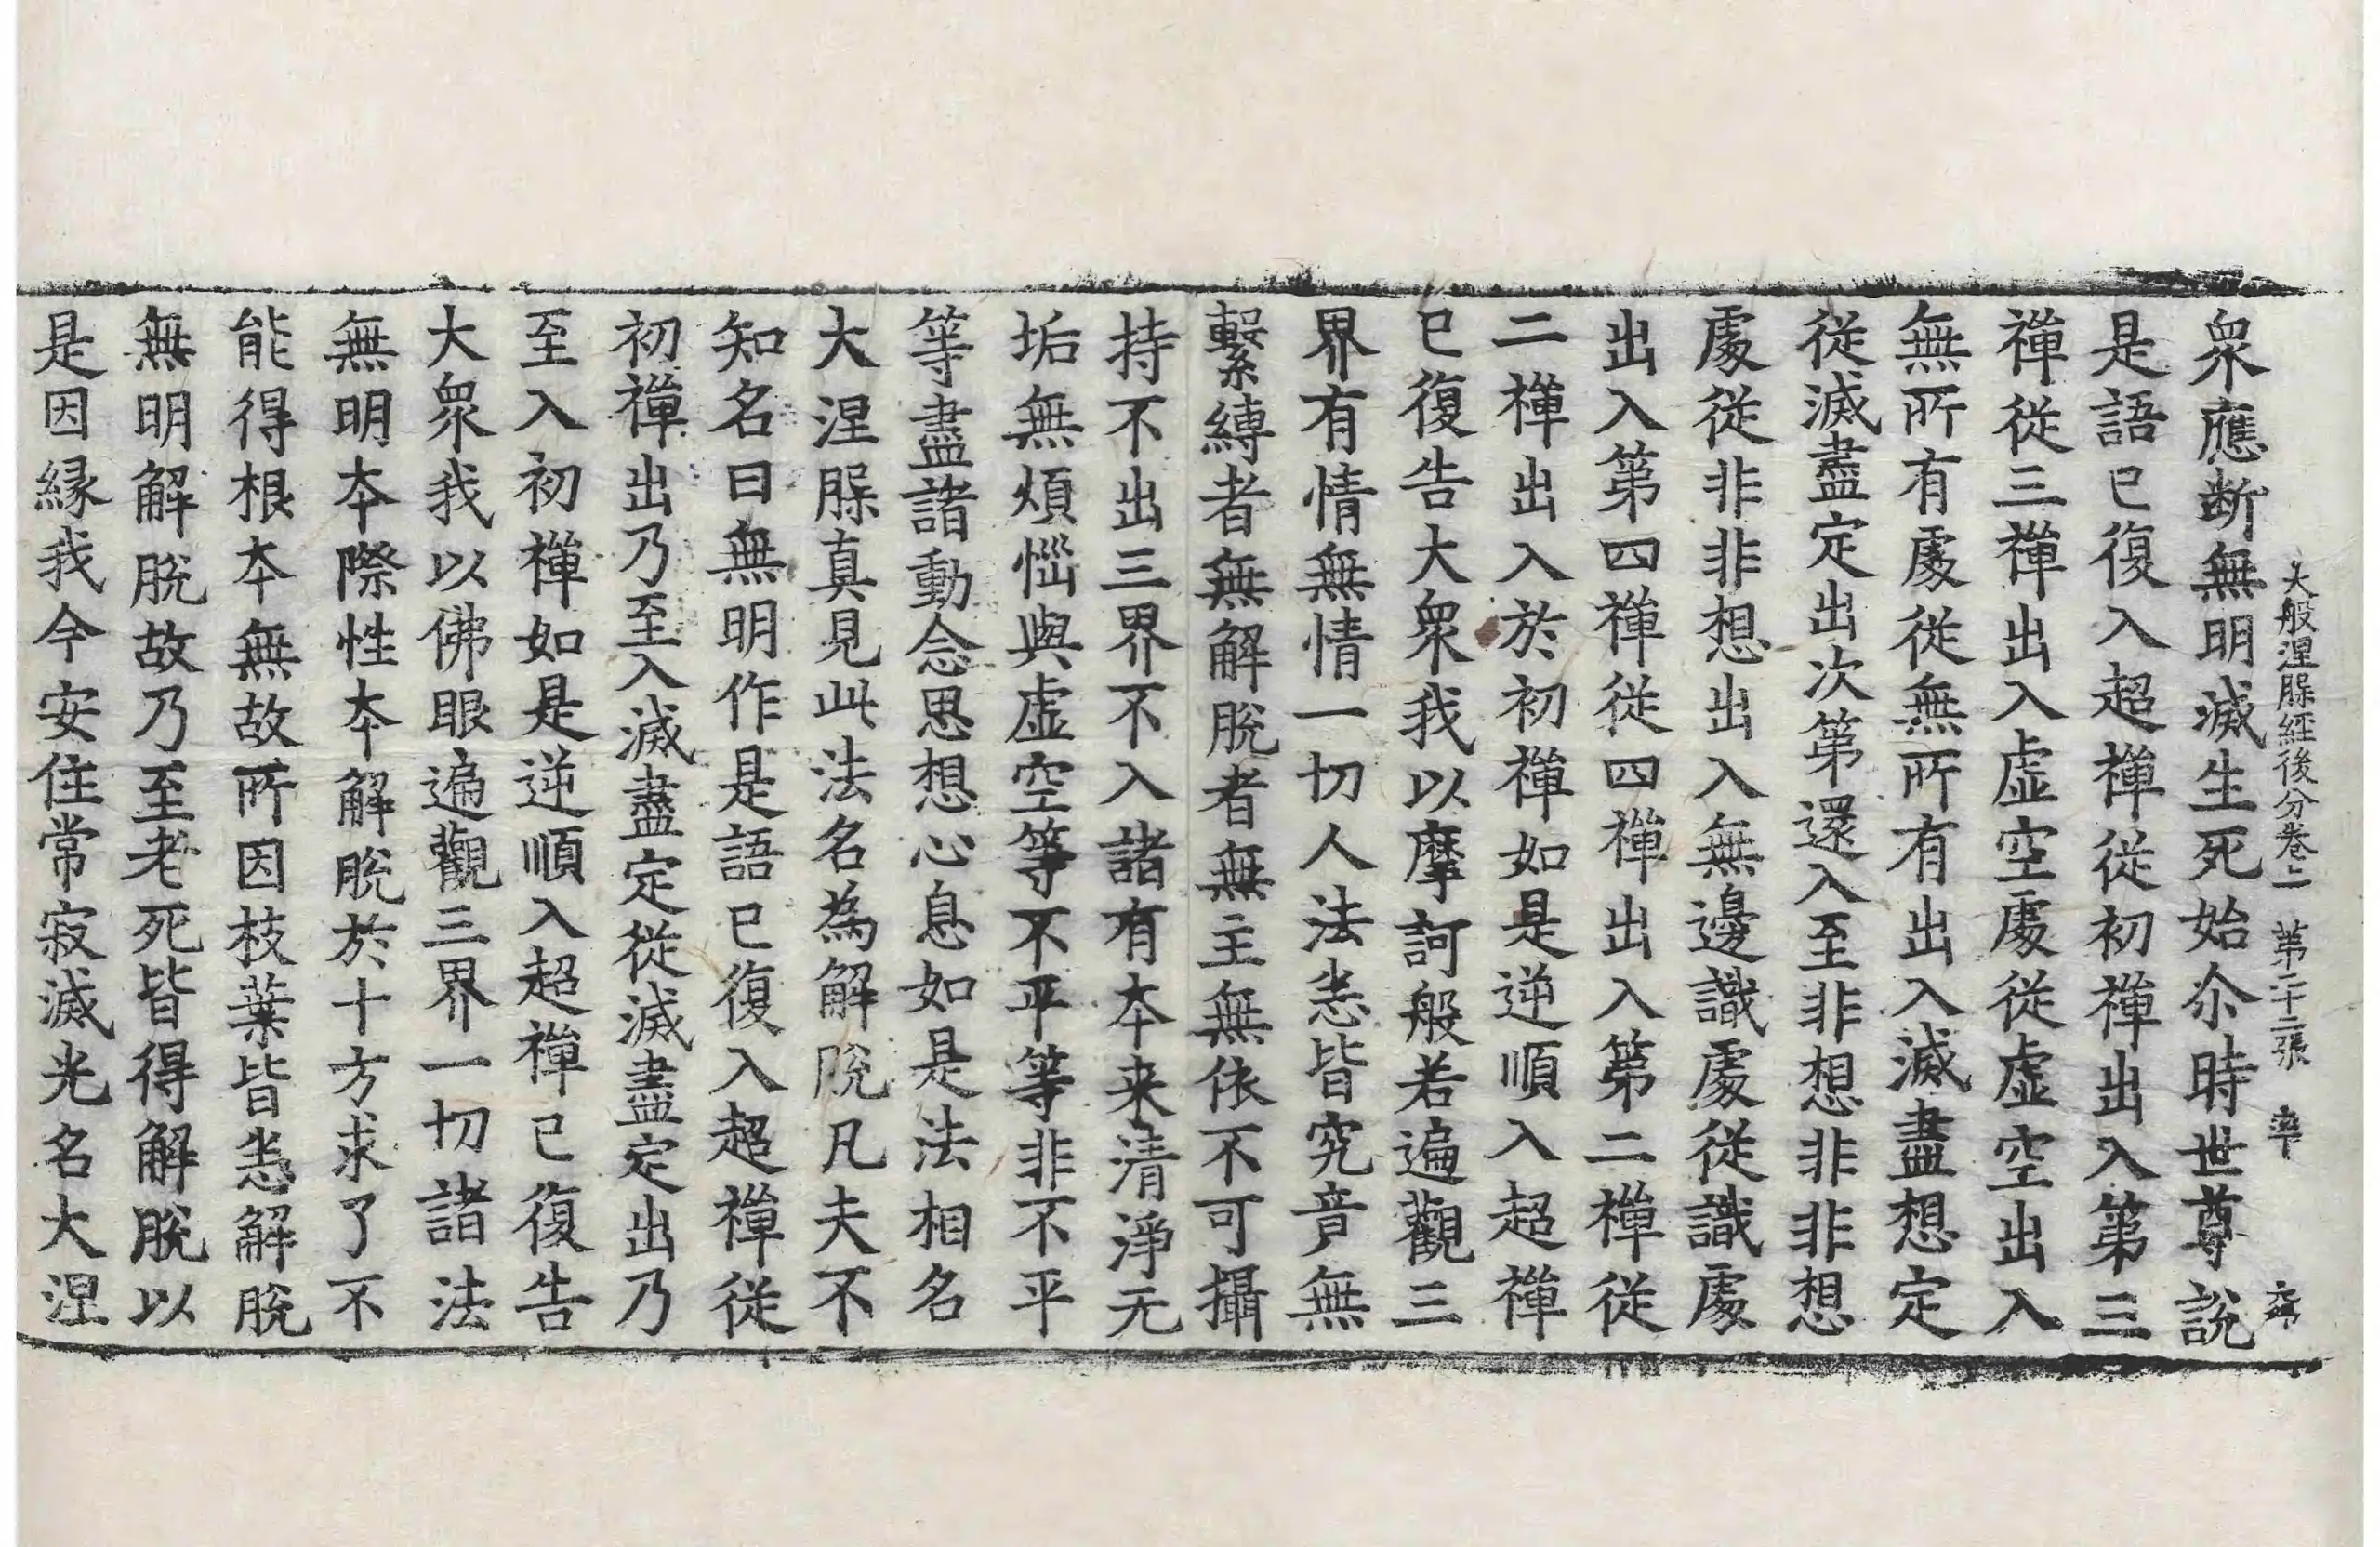 大般涅槃經後分卷上 第二十二張 率
衆應断無明滅生死始尒時世尊說
是語已復入超禪從初禪出入第三
禪從三禪出入虛空處從虛空出入
無所有處從無所有出入滅盡想定
從滅盡定出次第還入至非想非非想
處從非非想出入無邊識處從識處
出入第四禪從四禪出入第二禪從
二禪出入於初禪如是逆順入超禪
已復告大衆我以摩訶般若遍觀三
界有情無情一切人法悉皆究竟無
繫縛者無解脫者無主無依不可攝
持不出三界不入諸有本来清淨无
垢無煩惱與虛空等不平等非不平
等盡諸動念思想心息如是法相名
大涅槃真見此法名為解脫凡夫不
知名曰無明作是語已復入超禪從
初禪出乃至入滅盡定從滅盡定出乃
至入初禪如是逆順入超禪已復告
大衆我以佛眼遍觀三界一切諸法
無明本際性本解脫於十方求了不
能得根本無故所因枝葉皆悉解脫
無明解脫故乃至老死皆得解脫以
是因緣我今安住常寂滅光名大涅